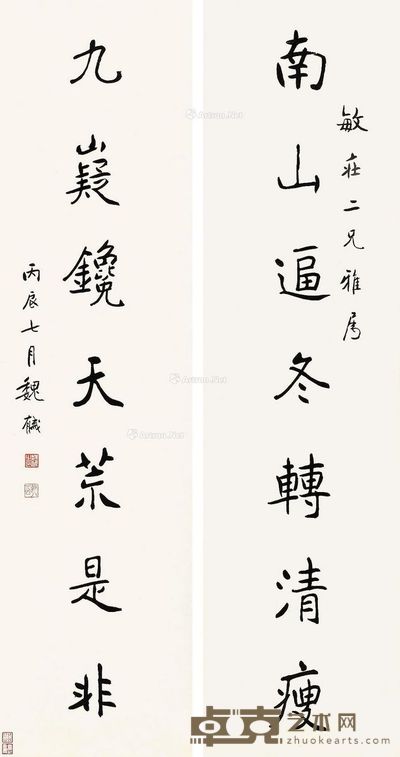 敏莊二兄雅属
南山逼冬轉清瘦
九嶷鑱天荒是非
丙辰七月魏戫
Artron.Net
Artron.Net
Artron.Net
Artron.Net
卓克艺术网
zhuokearts.com